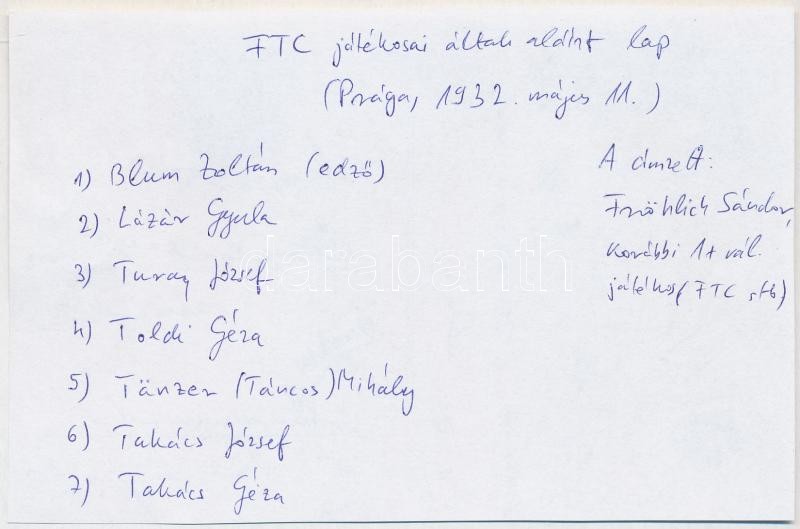 FTC játékosai által aláírt lap
(Prága, 1932. május 11.)
1) Blum Zoltán (edző)
2) Lázár Gyula
3) Turay József
4) Toldi Géza
5) Tänzer (Táncos) Mihály
6) Takács József
7) Takács Géza
A címzett:
Fröhlich Sándor,
korábbi 1x vál.
játékos (FTC stb)
darabanth